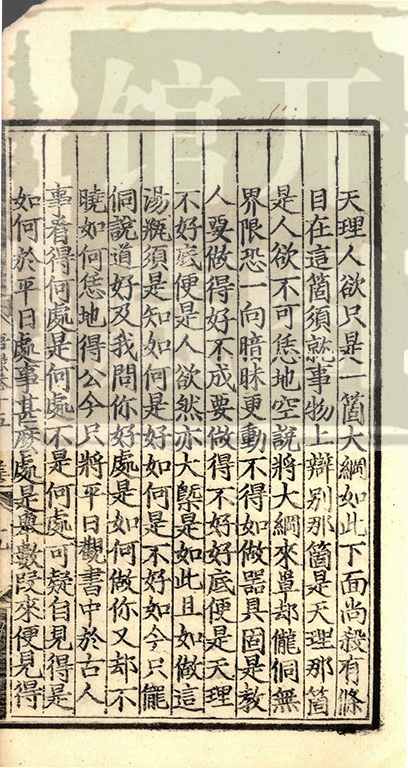 天理人欲只是一箇大綱如此下面尚殺有條
目在這箇須就事物上辯別那箇是天理那箇
是人欲不可恁地空說將大綱來罩却儱侗無
界限恐一向暗昧更動不得如做器具固是教
人要做得好不成要做得不好好底便是天理
不好底便是人欲然亦大槩是如此且如做這
湯瓶須是知如何是好如何是不好如今只儱
侗說道好及我問你好處是如何做你又却不
曉如何恁地得公今只將平日觀書中於古人
事者得何處是何處不是何處可疑自見得是
如何於平日處事甚麽處是舉數段來便見得